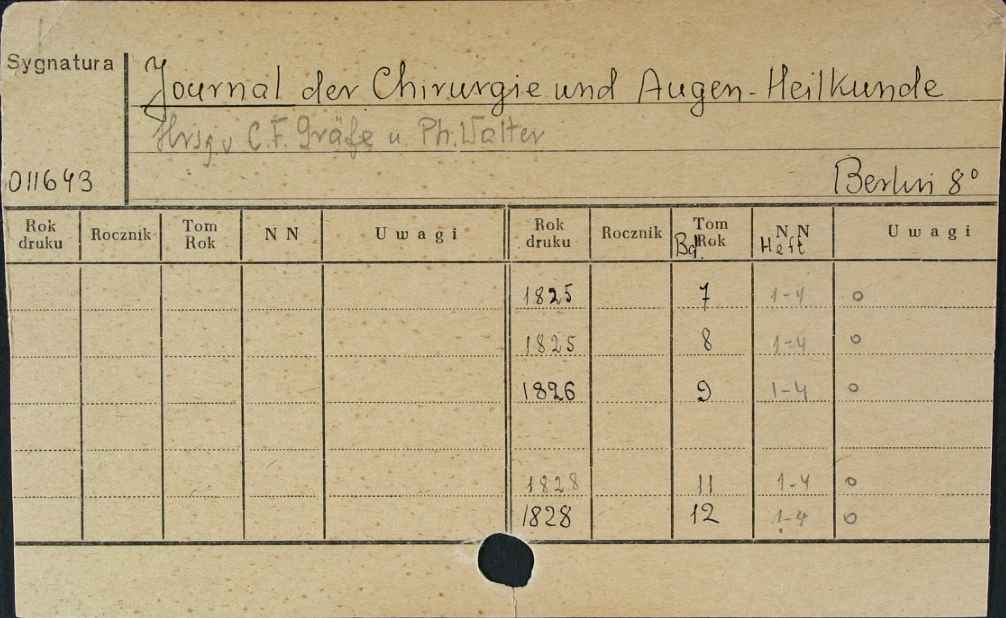 Sygnatura
Journal der Chirurgie und Augen-Heilkunde
Hrsg. v C.F. Gräfe u. Ph. Walter
011643
Berlin 8°
Rok druku Rocznik Tom Rok NN Uwagi Rok druku Rocznik Bd. Tom Rok NN Heft Uwagi
1825 7 1-4 o
1825 8 1-4 o
1826 9 1-4 o
1828 11 1-4 o
1828 12 1-4 o